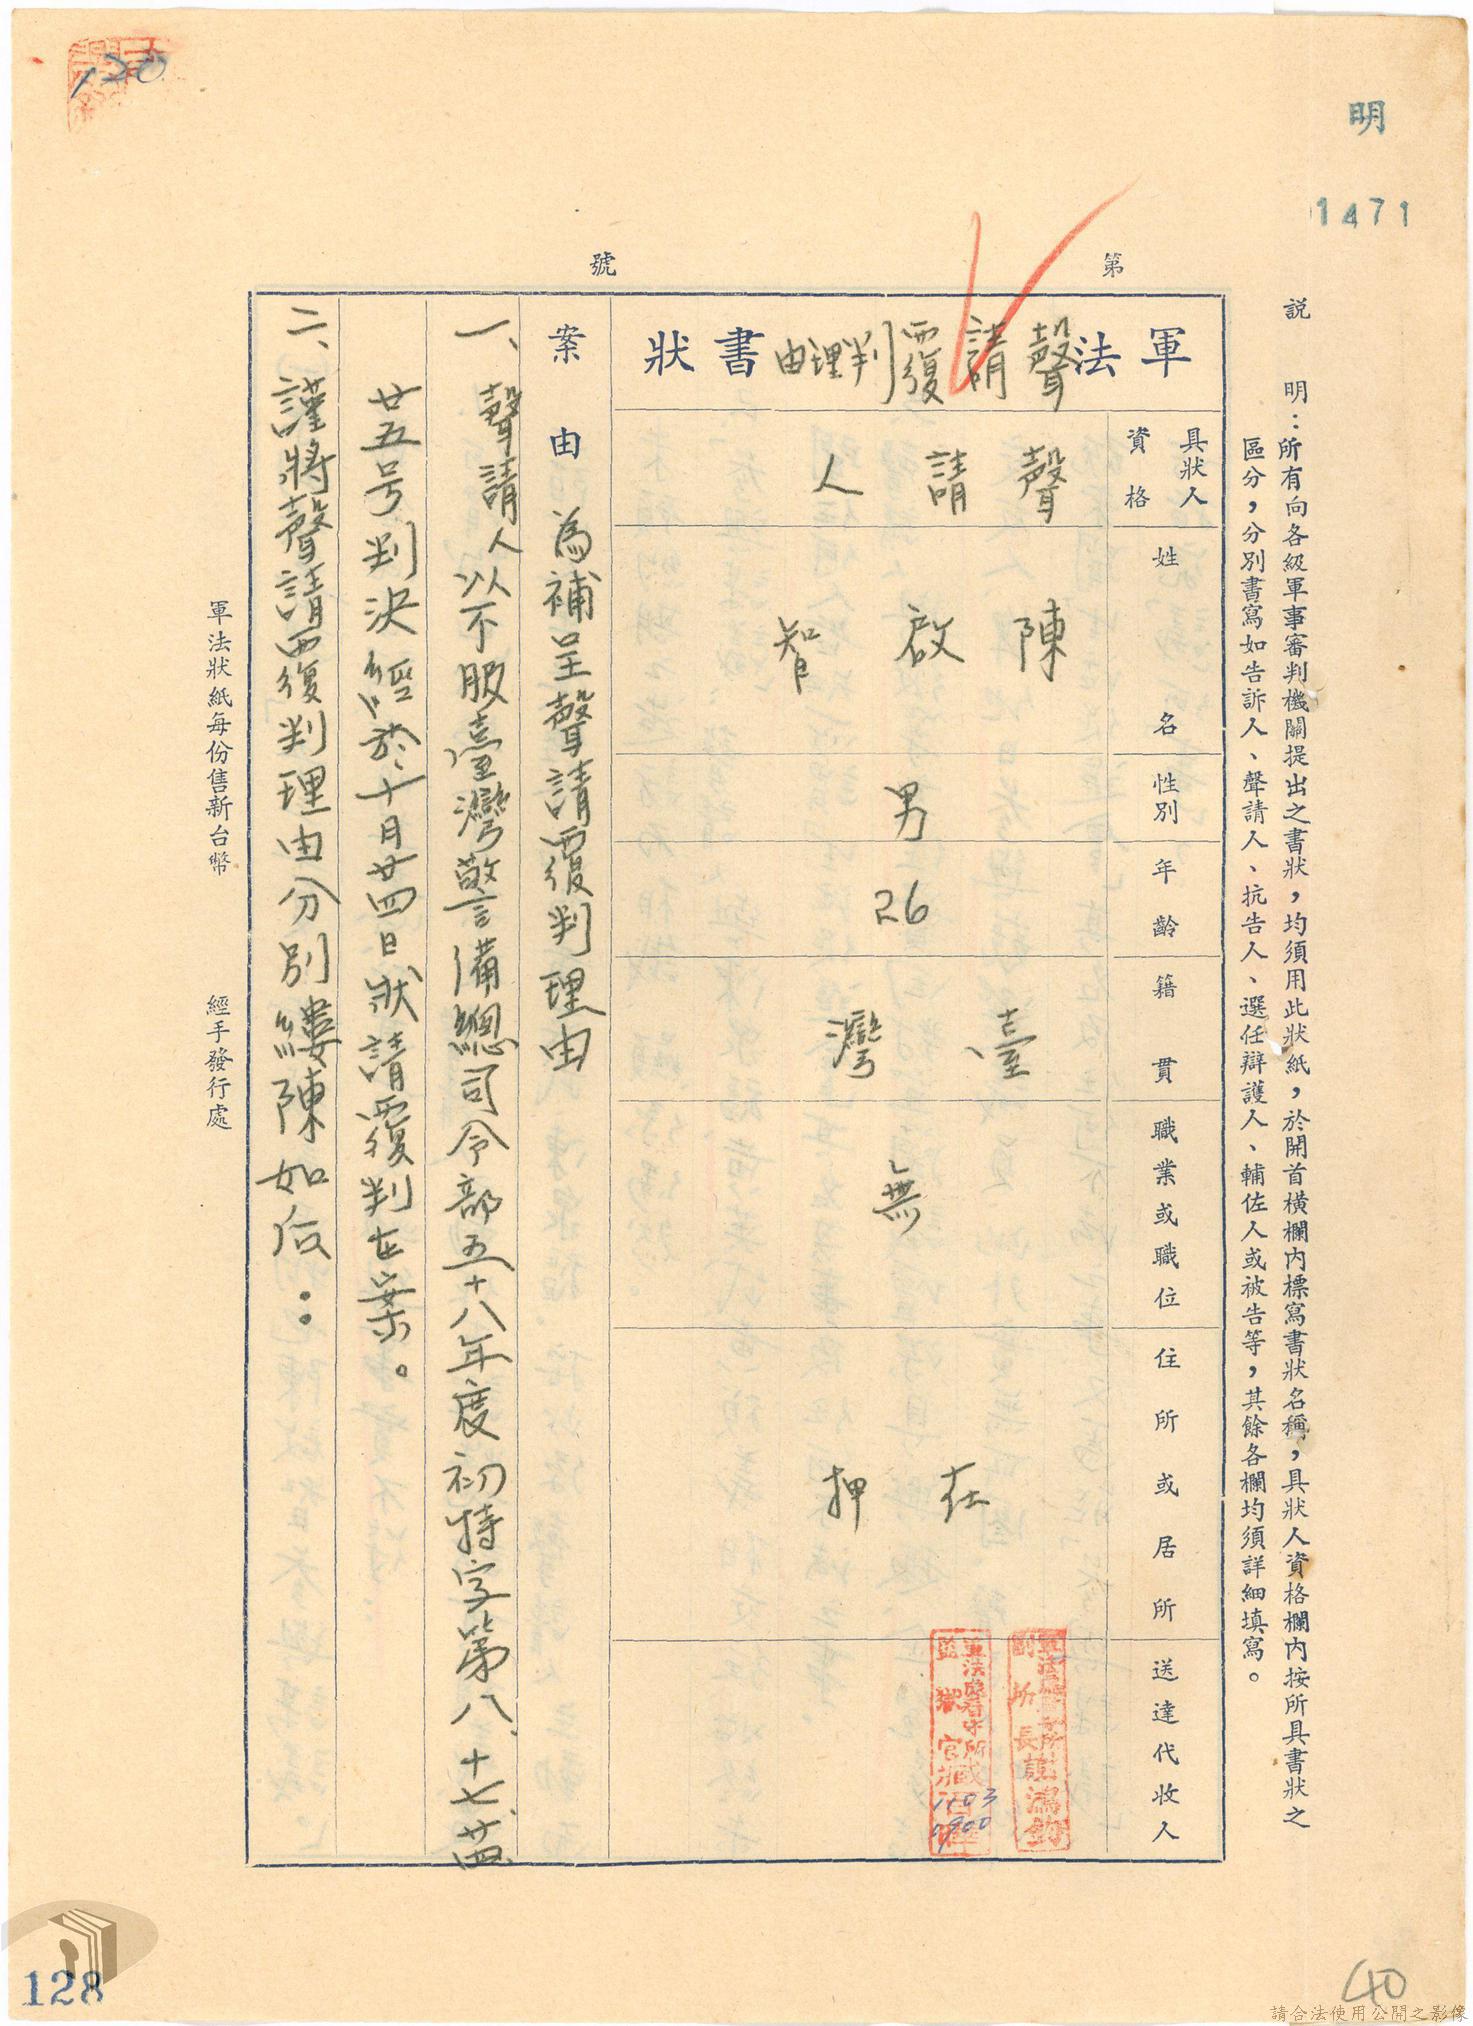 明
1471
120
第 號
說 明：所有向各級軍事審判機關提出之書狀，均須用此狀紙，於開首橫欄內標寫書狀名稱，具狀人資格欄內按所具書狀之
區分，分別書寫如告訴人、聲請人、抗告人、選任辯護人、輔佐人或被告等，其餘各欄均須詳細填寫。
軍法聲請覆判理由書狀
具狀人資格 聲請人
姓名 陳啟智
性別 男
年齡 26
籍貫 臺灣
職業或職位 無
住所或居所 在押
送達代收人
1103
0900
案由 為補呈聲請覆判理由
一、聲請人以不服臺灣警備總司令部五十八年度初特字第八、十七、
廿五号判決經於十月廿四日狀請覆判在案。
二、謹將聲請覆判理由分別縷陳如后：
軍法狀紙每份售新台幣 經手發行處
128
40
請合法使用公開之影像